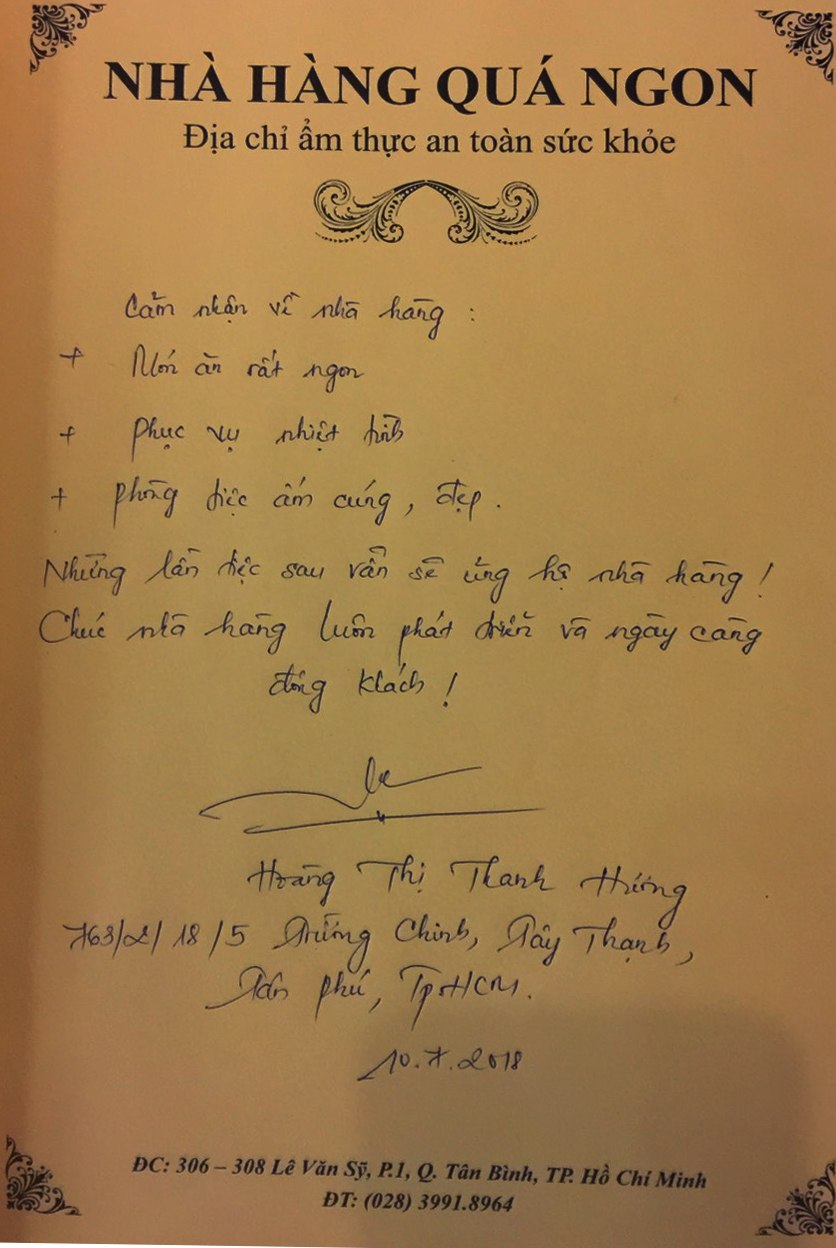 NHÀ HÀNG QUÁ NGON
Địa chỉ ẩm thực an toàn sức khỏe
Cảm nhận về nhà hàng :
+ Món ăn rất ngon
+ Phục vụ nhiệt tình
+ Phòng tiệc ấm cúng, đẹp.
Những lần tiệc sau vẫn sẽ ủng hộ nhà hàng !
Chúc nhà hàng luôn phát triển và ngày càng
đông khách !
Hoàng Thị Thanh Hương
763/2/18/5 Trường Chinh, Tây Thạnh,
Tân phú, TpHCM.
10.7.2018
ĐC: 306 – 308 Lê Văn Sỹ, P.1, Q. Tân Bình, TP. Hồ Chí Minh
ĐT: (028) 3991.8964